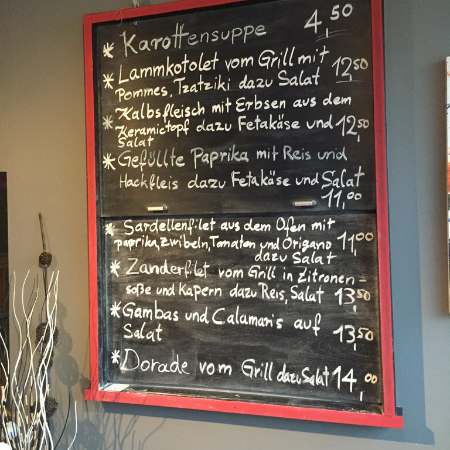 * Karottensuppe 4,50
* Lammkotolet vom Grill mit
Pommes, Tzatziki dazu Salat 12,50
* Kalbsfleisch mit Erbsen aus dem
Keramictopf dazu Fetakäse und 12,50
Salat
* Gefüllte Paprika mit Reis und
Hackfleis dazu Fetakäse und Salat
11,00
* Sardellenfilet aus dem Ofen mit
paprika, zwibeln, Tomaten und Origano 11,00
dazu Salat
* Zanderfilet vom Grill in Zitronen=
soße und Kapern dazu Reis, Salat 13,50
* Gambas und Calamaris auf
Salat 13,50
* Dorade vom Grill dazu Salat 14,00